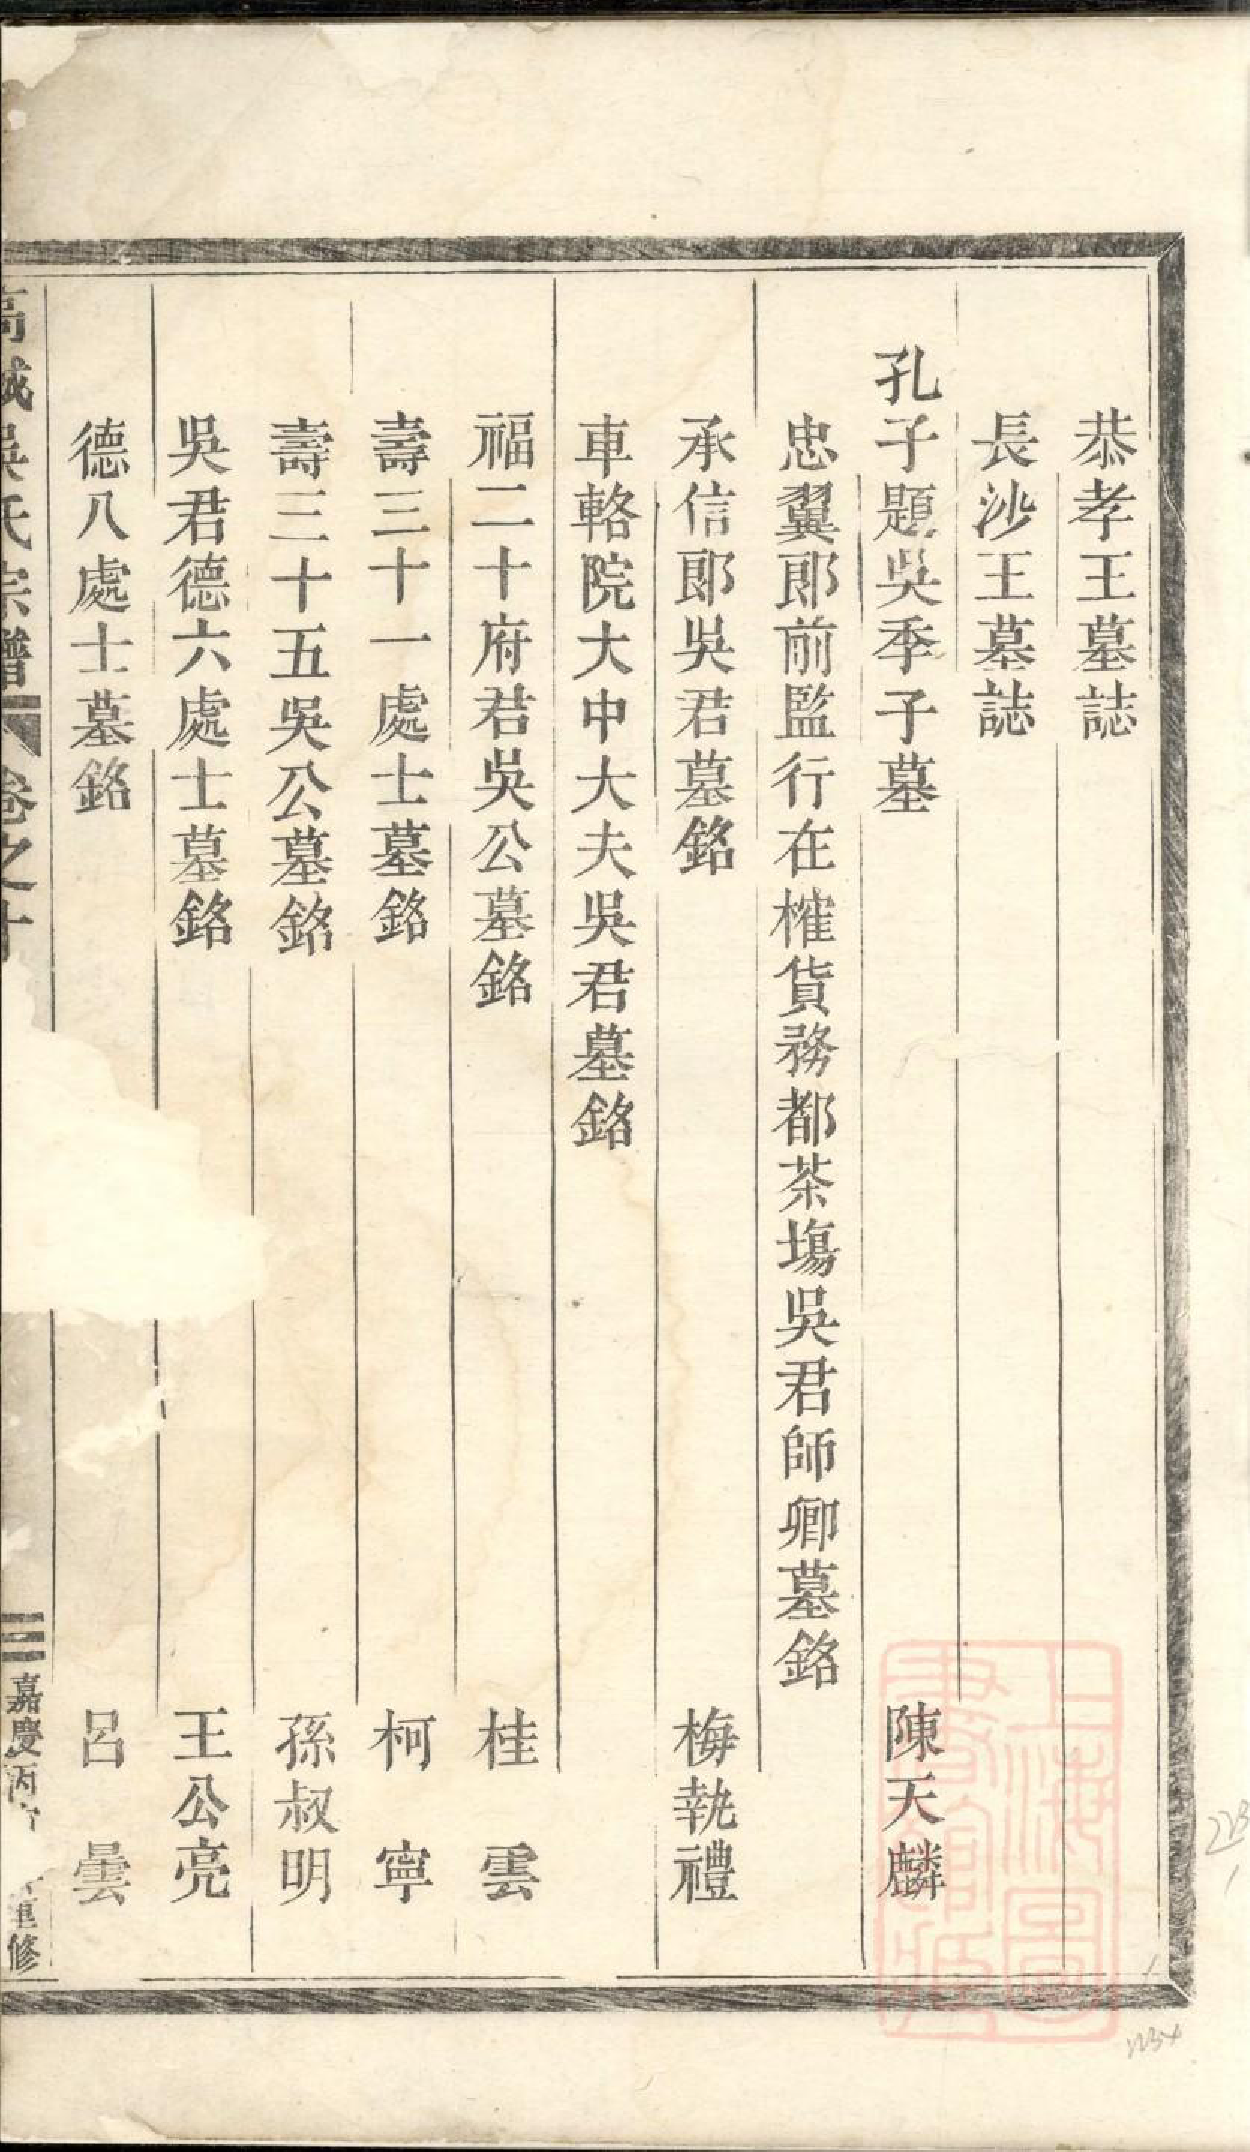 恭孝王墓誌
長沙王墓誌
孔子題吳季子墓 陳天麟
忠翼郎前監行在榷貨務都茶塲吳君師卿墓銘
承信郎吳君墓銘 梅執禮
車輅院大中大夫吳君墓銘
福二十府君吳公墓銘 桂雲
壽三十一處士墓銘 柯寧
壽三十五吳公墓銘 孫叔明
吳君德六處士墓銘 王公亮
德八處士墓銘 呂曇
高城吳氏宗譜 卷之十 三 嘉慶丙 重修
上海圖書館藏